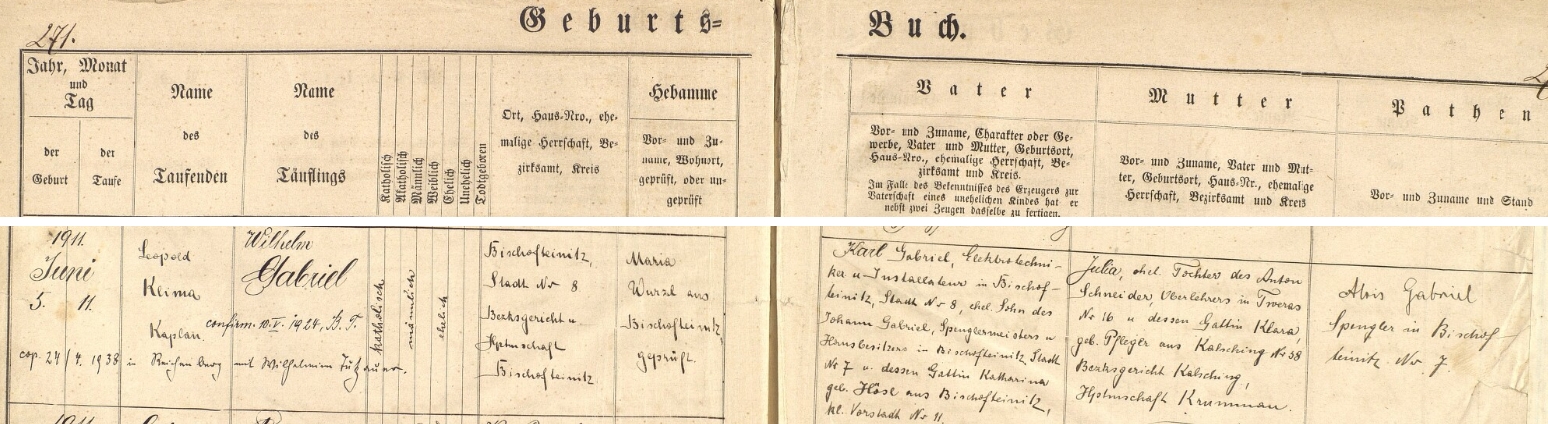 271.
Geburts=
Buch.
Jahr, Monat
und
Tag
der
Geburt
der
Taufe
Name
des
Taufenden
Name
des
Täuflings
Katholisch
Akatholisch
Männlich
Weiblich
Ehelich
Unehelich
Todtgeboren
Ort, Haus-Nro., ehe-
malige Herrschaft, Be-
zirksamt, Kreis
Hebamme
Vor- und Zu-
name, Wohnort,
geprüft, oder un-
geprüft
Vater
Vor- und Zuname, Charakter oder Ge-
werbe, Vater und Mutter, Geburtsort,
Haus-Nro., ehemalige Herrschaft, Be-
zirksamt und Kreis.
Im Falle des Bekenntnisses des Erzeugers zur
Vaterschaft eines unehelichen Kindes hat er
nebst zwei Zeugen dasselbe zu fertigen.
Mutter
Vor- und Zuname, Vater und Mut-
ter, Geburtsort, Haus-Nr., ehemalige
Herrschaft, Bezirksamt und Kreis
Pathen
Vor- und Zuname und Stand
1911.
Juni
5. 11.
Leopold
Klima
Kaplan.
Wilhelm
Gabriel
confirm. 10. V. 1924, B. T.
cop. 24/4. 1938 in Reichenberg mit Wilhelmine
katholisch
männlich
ehelich
Bischofteinitz,
Stadt Nr 8
Bezksgericht u
Hptmschaft
Bischofteinitz
Maria
Wurzel aus
Bischofteinitz,
geprüft.
Karl Gabriel, Elektrotechni-
ker u Installateur in Bischof-
teinitz, Stadt Nr 8, ehel. Sohn des
Johann Gabriel, Spenglermeisters u
Hausbesitzers in Bischofteinitz Stadt
Nr 7 u. dessen Gattin Katharina
geb. Hösl aus Bischofteinitz,
kl. Vorstadt Nr 11.
Julia, ehel. Tochter des Anton
Schneider, Oberlehrers in Tweras
Nr 16 u dessen Gattin Klara,
geb. Pflegler aus Kalsching Nr 38
Bezksgericht Kalsching,
Hptmschaft Krummau.
Alois Gabriel
Spengler in Bischof-
teinitz Nr 7.
1911